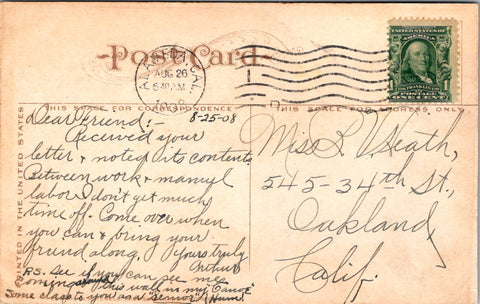 Post Card
ALAMEDA, CAL.
AUG 26
6-30AM
1908
UNITED STATES OF AMERICA
FRANKLIN
POSTAGE
ONE CENT
THIS SPACE FOR CORRESPONDENCE
THIS SPACE FOR ADDRESS ONLY
PRINTED IN THE UNITED STATES
8-25-08
Dear Friend:-
Received your
letter & noted its contents
Between work & manuel
labor I don't get much
time off. Come over when
you can & bring your
friend along. Yours truly
Arthur
P.S. See if you can see me
coming this wall in my "Canoe"
Some class to you as a "senior" Hum.
Miss L. Heath,
545-34th St.,
Oakland,
Calif.